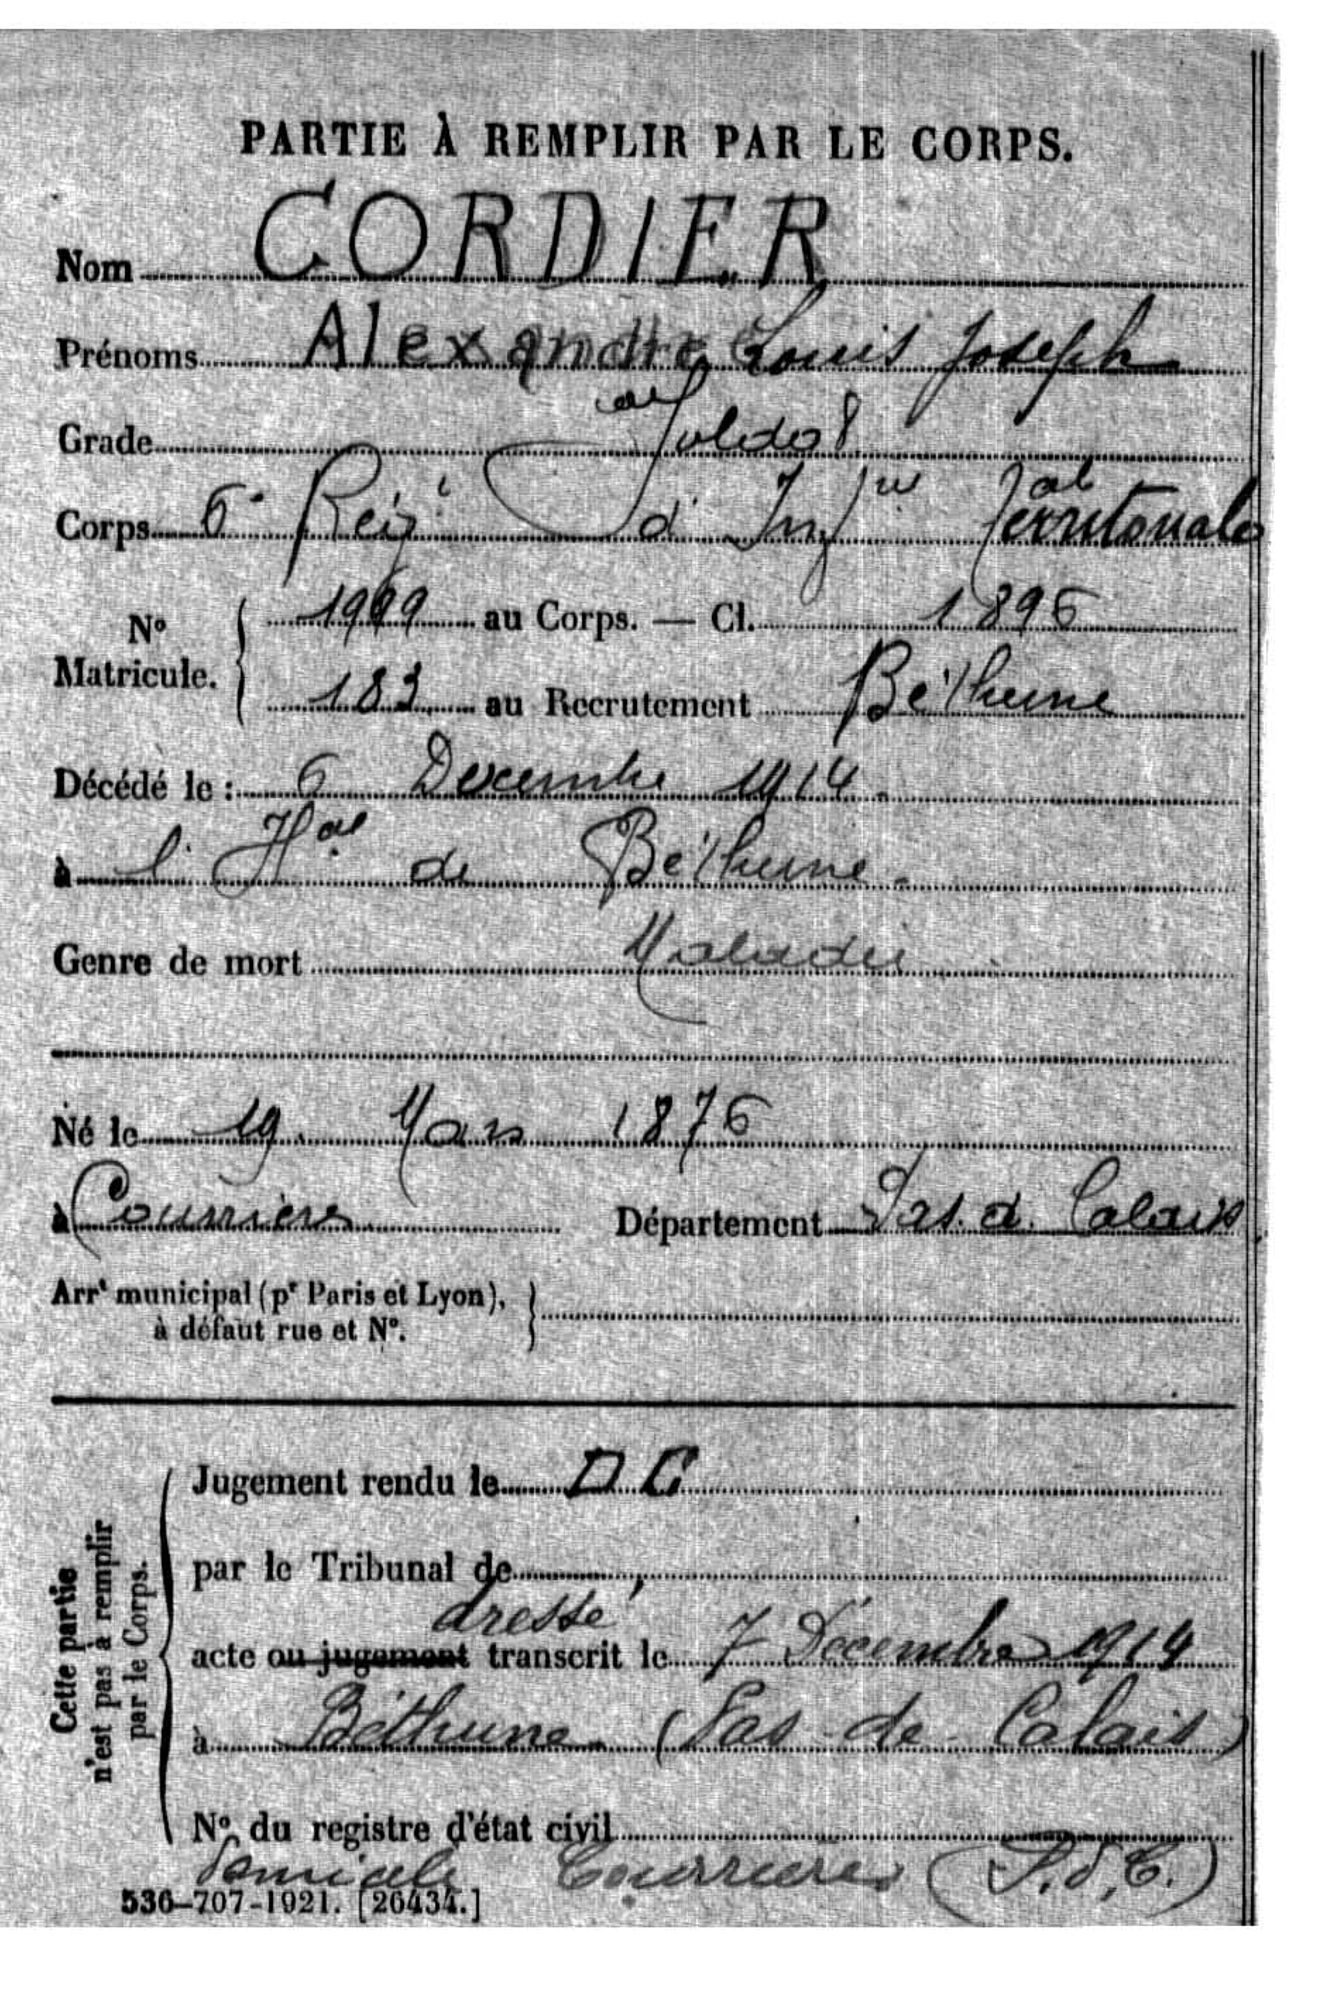 PARTIE À REMPLIR PAR LE CORPS.
Nom CORDIER
Prénoms Alexandre Louis Joseph
Grade Soldat
Corps 6e Reigt d'Infie Tale Territoriale
No Matricule. 1999 au Corps. — Cl. 1896
183 au Recrutement Béthune
Décédé le : 6 Decembre 1914.
à l'Hal de Béthune.
Genre de mort Maladie
Né le 19 Mars 1876
à Courrières Département Pas. d. Calais
Arrt municipal (pr Paris et Lyon), à défaut rue et No.
Cette partie n'est pas à remplir par le Corps.
Jugement rendu le DC
par le Tribunal de
dressé
acte ou jugement transcrit le 7 Décembre 1914
à Béthune (Pas-de-Calais)
No du registre d'état civil
domicile Courrieres (P.d.C.)
536-707-1921. [26434.]